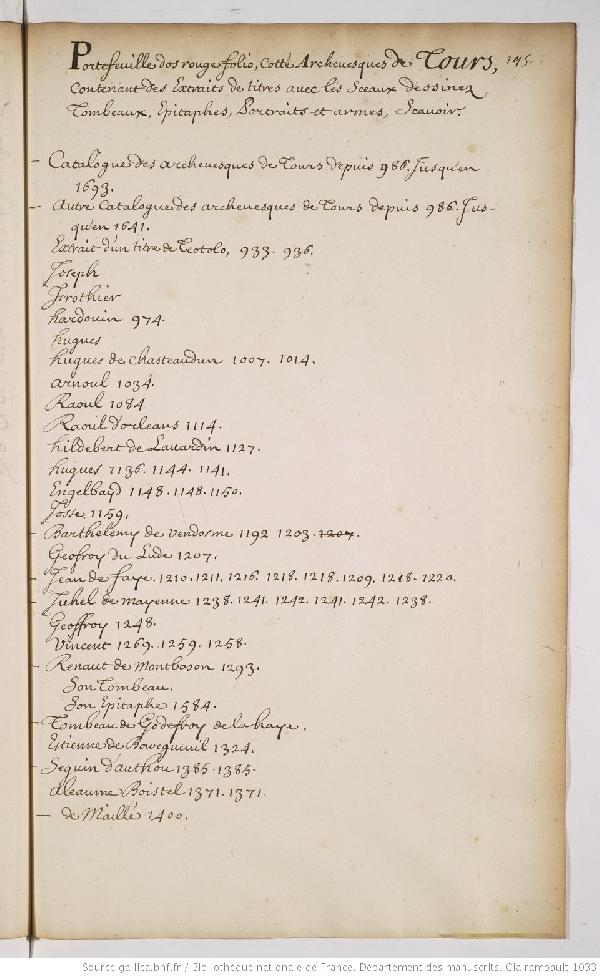 Portefeuille dos rouge folio, Cotté Archeuesques de Tours, 145.
Contenant des Extraits de titres auec les Sceaux dessinez,
Tombeaux, Epitaphes, Portraits et armes, Scauoir.
– Catalogue des archeuesques de Tours depuis 986. Jusqu'en
1693.
– Autre Catalogue des archeuesques de Tours depuis 986. Jus-
qu'en 1641.
Extrait d'un titre de Teotolo, 933. 936.
Joseph
Frothier
hardouin 974.
hugues
hugues de Chasteaudun 1007. 1014.
arnoul 1034.
Raoul 1084.
Raoul d'orleans 1114.
hildebert de Lauardin 1127.
hugues 1136. 1144. 1141.
Engelbayd 1148. 1148. 1150.
Josse 1159.
– Barthelemy de vendosme 1192 1203. 1207.
Geofroy du Lude 1207.
– Jean de faye 1210. 1211. 1216. 1218. 1218. 1209. 1218. 1220.
– Juhel de mayenne 1238. 1241. 1242. 1241. 1242. 1238.
Geoffroy 1248.
Vincent 1269. 1259. 1258.
– Renaut de Montboson 1293.
Son Tombeau.
Son Epitaphe 1584.
– Tombeau de Godefroy de la haye.
Estienne de Bourgueuil 1324.
– Seguin d'authou 1385. 1385.
aleaume Boistel 1371. 1371.
– de Maillé 1400.
Source gallica.bnf.fr / Bibliothèque nationale de France. Département des manuscrits. Clairambault 1033